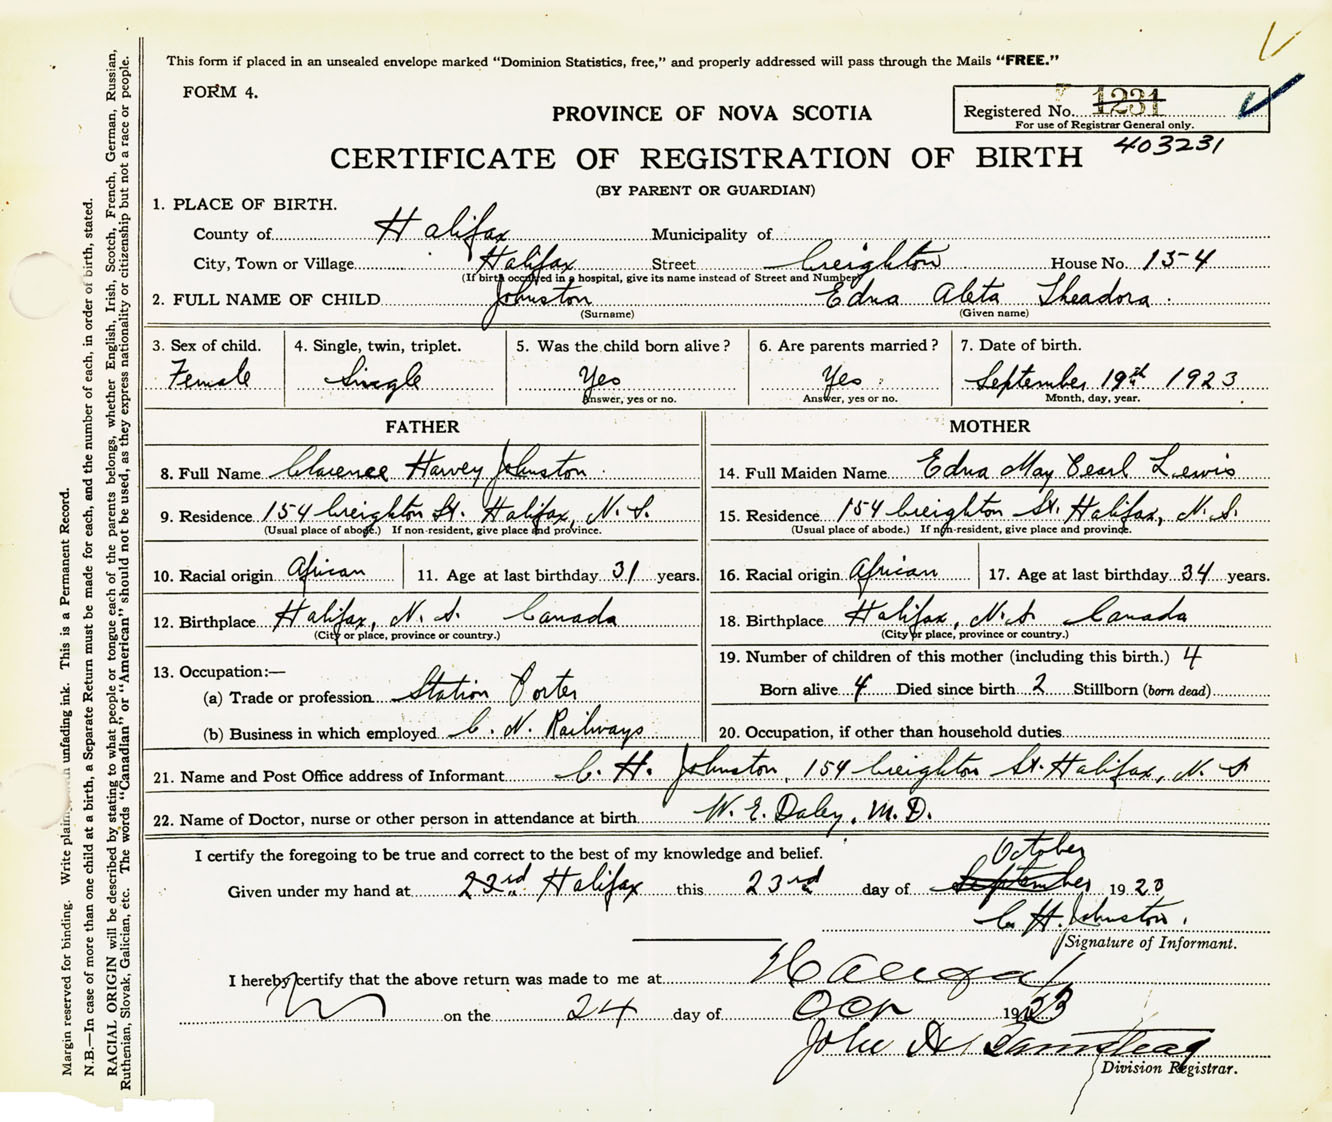 This form if placed in an unsealed envelope marked "Dominion Statistics, free," and properly addressed will pass through the Mails "FREE."
FORM 4.
PROVINCE OF NOVA SCOTIA
Registered No. 1231
For use of Registrar General only.
403231
CERTIFICATE OF REGISTRATION OF BIRTH
(BY PARENT OR GUARDIAN)
1. PLACE OF BIRTH.
County of Halifax Municipality of
City, Town or Village Halifax Street Creighton House No. 154
(If birth occurred in a hospital, give its name instead of Street and Number)
2. FULL NAME OF CHILD Johnston Edna Aleta Theadora.
(Surname) (Given name)
3. Sex of child. 4. Single, twin, triplet. 5. Was the child born alive? 6. Are parents married? 7. Date of birth.
Female Single Yes Yes September 19th 1923
Answer, yes or no. Answer, yes or no. Month, day, year.
FATHER MOTHER
8. Full Name Clarence Harvey Johnston 14. Full Maiden Name Edna May Pearl Lewis
9. Residence 154 Creighton St. Halifax, N. S. 15. Residence 154 Creighton St. Halifax, N. S.
(Usual place of abode.) If non-resident, give place and province. (Usual place of abode.) If non-resident, give place and province.
10. Racial origin African 11. Age at last birthday 31 years. 16. Racial origin African 17. Age at last birthday 34 years.
12. Birthplace Halifax, N. S. Canada 18. Birthplace Halifax, N. S. Canada
(City or place, province or country.) (City or place, province or country.)
13. Occupation:— 19. Number of children of this mother (including this birth.) 4
(a) Trade or profession Station Porter Born alive 4 Died since birth 2 Stillborn (born dead)
(b) Business in which employed C. N. Railways 20. Occupation, if other than household duties
21. Name and Post Office address of Informant C. H. Johnston, 154 Creighton St. Halifax, N. S
22. Name of Doctor, nurse or other person in attendance at birth W. E. Daley, M. D.
I certify the foregoing to be true and correct to the best of my knowledge and belief. October
Given under my hand at 23rd Halifax this 23rd day of September 1923
C. H. Johnston.
Signature of Informant.
I hereby certify that the above return was made to me at Halifax
on the 24 day of Oct 1923
John A
Division Registrar.
Margin reserved for binding. Write plainly with unfading ink. This is a Permanent Record.
N.B.—In case of more than one child at a birth, a Separate Return must be made for each, and the number of each, in order of birth, stated.
RACIAL ORIGIN will be described by stating to what people or tongue each of the parents belongs, whether English, Irish, Scotch, French, German, Russian,
Ruthenian, Slovak, Galician, etc. The words "Canadian" or "American" should not be used, as they express nationality or citizenship but not a race or people.